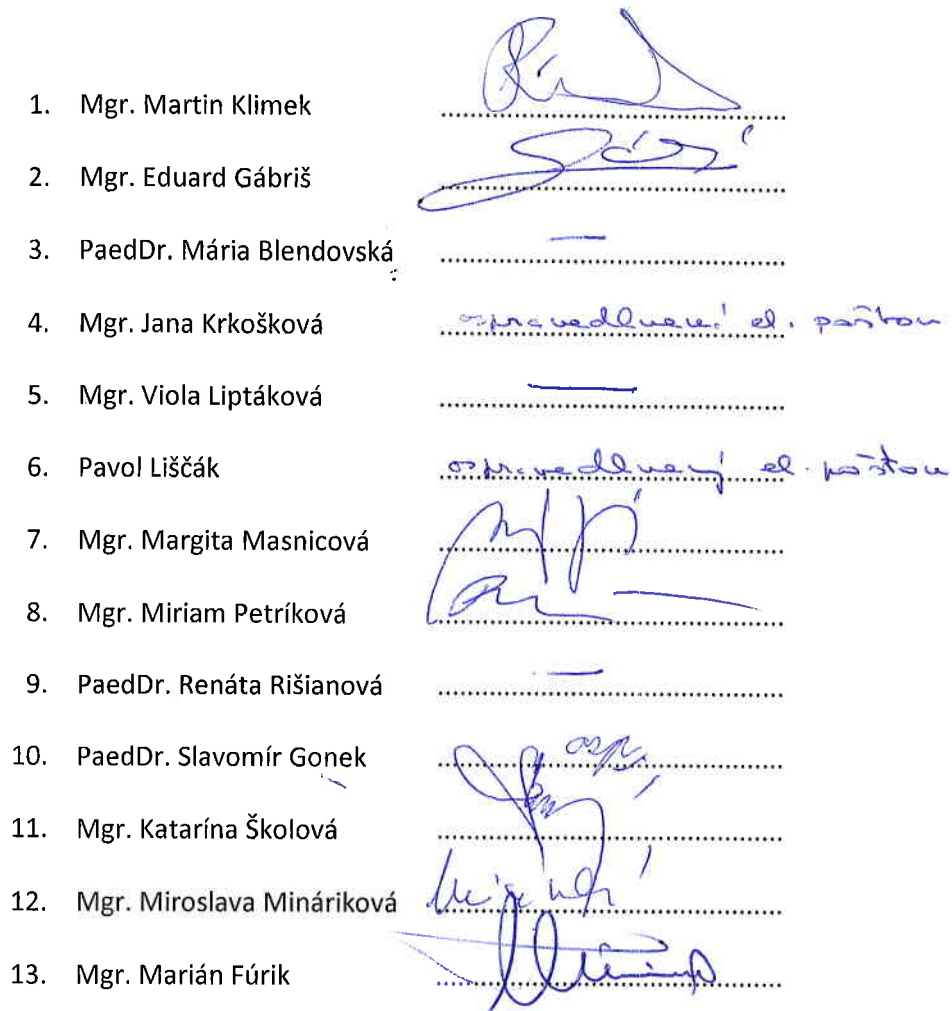 1. Mgr. Martin Klimek
2. Mgr. Eduard Gábriš
3. PaedDr. Mária Blendovská —
4. Mgr. Jana Krkošková ospravedlnená el. poštou
5. Mgr. Viola Liptáková —
6. Pavol Liščák ospravedlnený el. poštou
7. Mgr. Margita Masnicová
8. Mgr. Miriam Petríková
9. PaedDr. Renáta Rišianová —
10. PaedDr. Slavomír Gonek osp.
11. Mgr. Katarína Školová
12. Mgr. Miroslava Mináriková
13. Mgr. Marián Fúrik